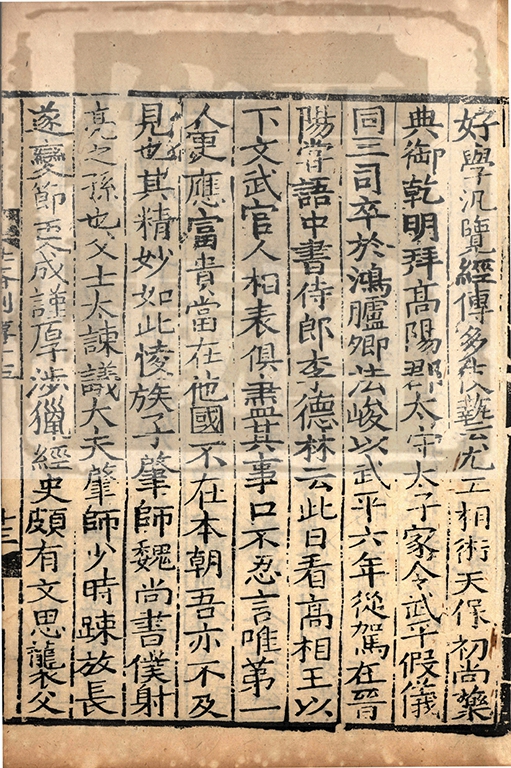 好學汎覽經傳多伎藝尤工相術天保初尚藥
典御乾明拜高陽郡太守太子家令武平假儀
同三司卒於鴻臚卿法峻以武平六年從駕在晉
陽嘗語中書侍郎李德林云此日看高相王以
下文武官人相表俱盡其事口不忍言唯弟一
人更應富貴當在他國不在本朝吾亦不及
見也其精妙如此㥄族子肇師魏尚書僕射
亮之孫也父士太諫議大夫肇師少時踈放長
遂變節更成謹厚涉獵經史頗有文思襲父